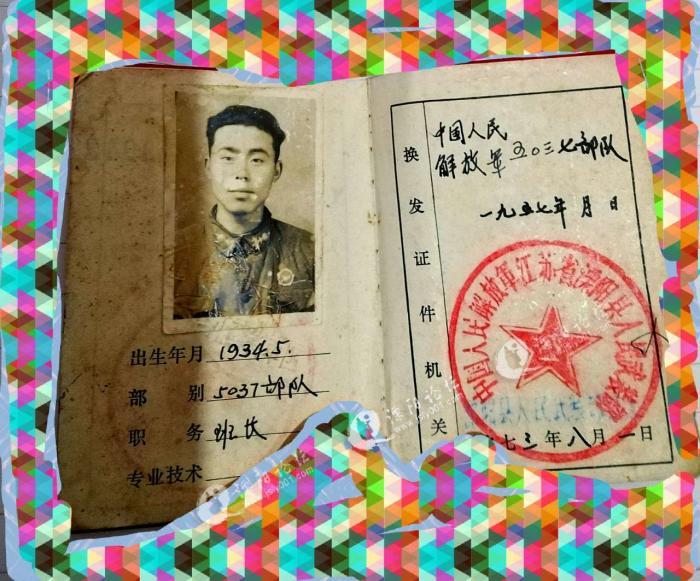 出生年月 1934.5.
部别 5037部队
职务 班长
专业技术
换发证件机关
中国人民
解放军五〇三七部队
一九五七年 月 日
中国人民解放军江苏省溧阳县人民武装部
七三年八月一日
溧阳论坛
www.jsly001.com
溧阳论坛
jsly001.com